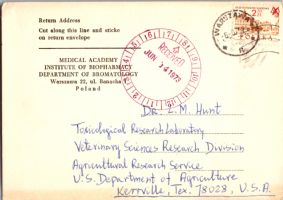 Return Address
Cut along this line and stickc
on return envelope
MEDICAL ACADEMY
INSTITUTE OF BIOPHARMACY
DEPARTMENT OF BROMATOLOGY
Warszawa 22, ul. Banacha
Poland
WARSZAWA
RECEIVED
JUN 14 1972
Dr. L.M. Hunt
Toxicological Research Laboratory
Veterinary Sciences Research Division
Agricultural Research Service
U.S. Department of Agriculture
Kerrville, Tex. 78028, U.S.A.